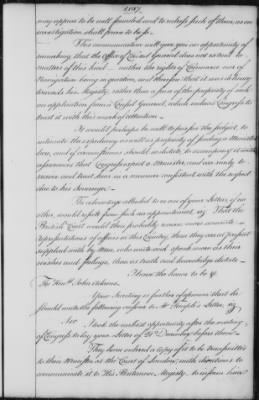 1087
may appear to be well founded and to redress such of them, as on
investigation shall prove to be so.
This communication will give you an opportunity of
remarking, that the Office of Consul General does not extend to
matters of this kind, neither the rights of Commerce nor of
Navigation being in question, and therefore that it was delicacy
towards his Majesty, rather than a sense of the propriety of such
an application from a Consul General, which induced Congress to
treat it with this mark of attention.
It would perhaps be well to pursue the subject, to
intimate the expediency as well as propriety of sending a Minister
here, and if circumstances should so dictate, to accompany it with
assurances that Congress expect a Minister, and are ready to
receive and treat him in a manner consistent with the respect
due to his Sovereign.
The advantage attached to one of your Letters, if no
other, would result from such an appointment, viz That the
British Court would then probably receive more accurate
representations of affairs in this Country, than they are at present
supplied with by Men, who write and speak more as their
wishes and feelings, than as truth and knowledge dictate.
I have the honor to be &
The Honble John Adams.
Your Secretary is further of opinion that he
should write the following reply to Mr Temple's Letter, viz
Sir I took the earliest opportunity after the meeting
of Congress to lay your Letter of before them.
They have ordered a Copy of it to be transmitted
to their Minister at the Court of London, with directions to
communicate it to His Britannic Majesty, to inform him